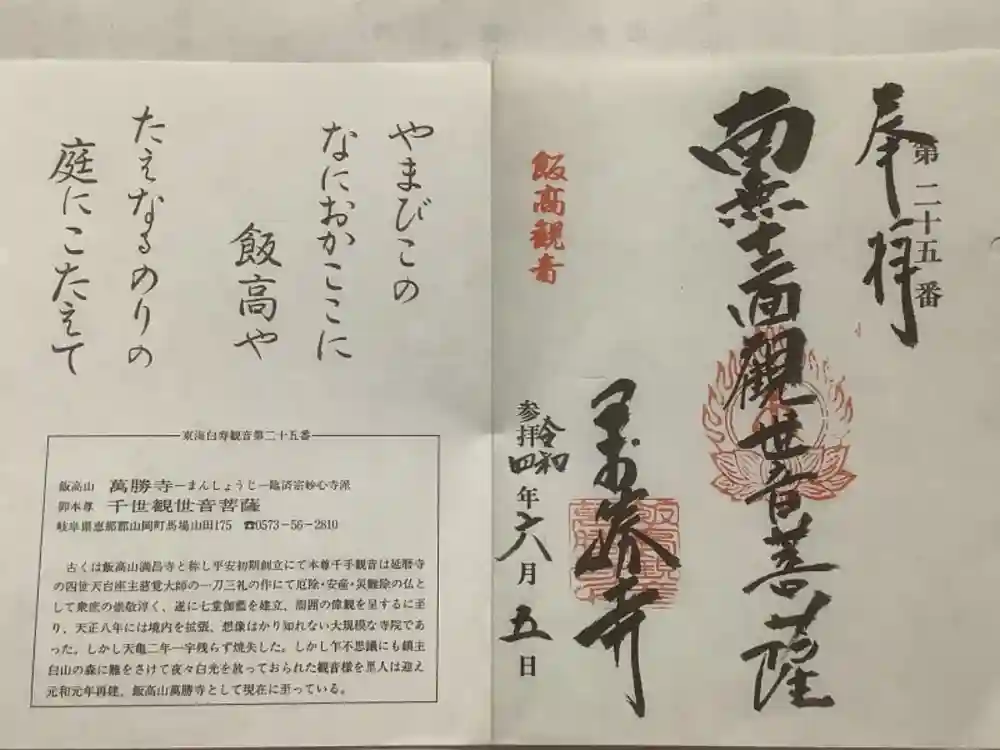 奉拝
第二十五番
南無十一面観世音菩薩
飯高観音
萬勝寺
参拝
令和
四年六月五日
やまびこの
なにおかここに
飯高や
たえなるのりの
庭にこたえて
東海白寿観音第二十五番
飯高山 萬勝寺―まんしょうじ―臨済宗妙心寺派
御本尊 千世観世音菩薩
岐阜県恵那郡山岡町馬場山田175 ☎0573-56-2810
古くは飯高山満昌寺と称し平安初期創立にて本尊千手観音は延暦寺
の四世天台座主慈覚大師の一刀三礼の作にて厄除・安産・災難除の仏と
して衆庶の崇敬淳く、遂に七堂伽藍を建立、周囲の偉観を呈するに至
り、天正八年には境内を拡張、想像はかり知れない大規模な寺院であ
った。しかし天亀二年一宇残らず焼失した。しかし乍不思議にも鎮主
白山の森に難をさけて夜々白光を放っておられた観音様を里人は迎え
元和元年再建、飯高山萬勝寺として現在に至っている。